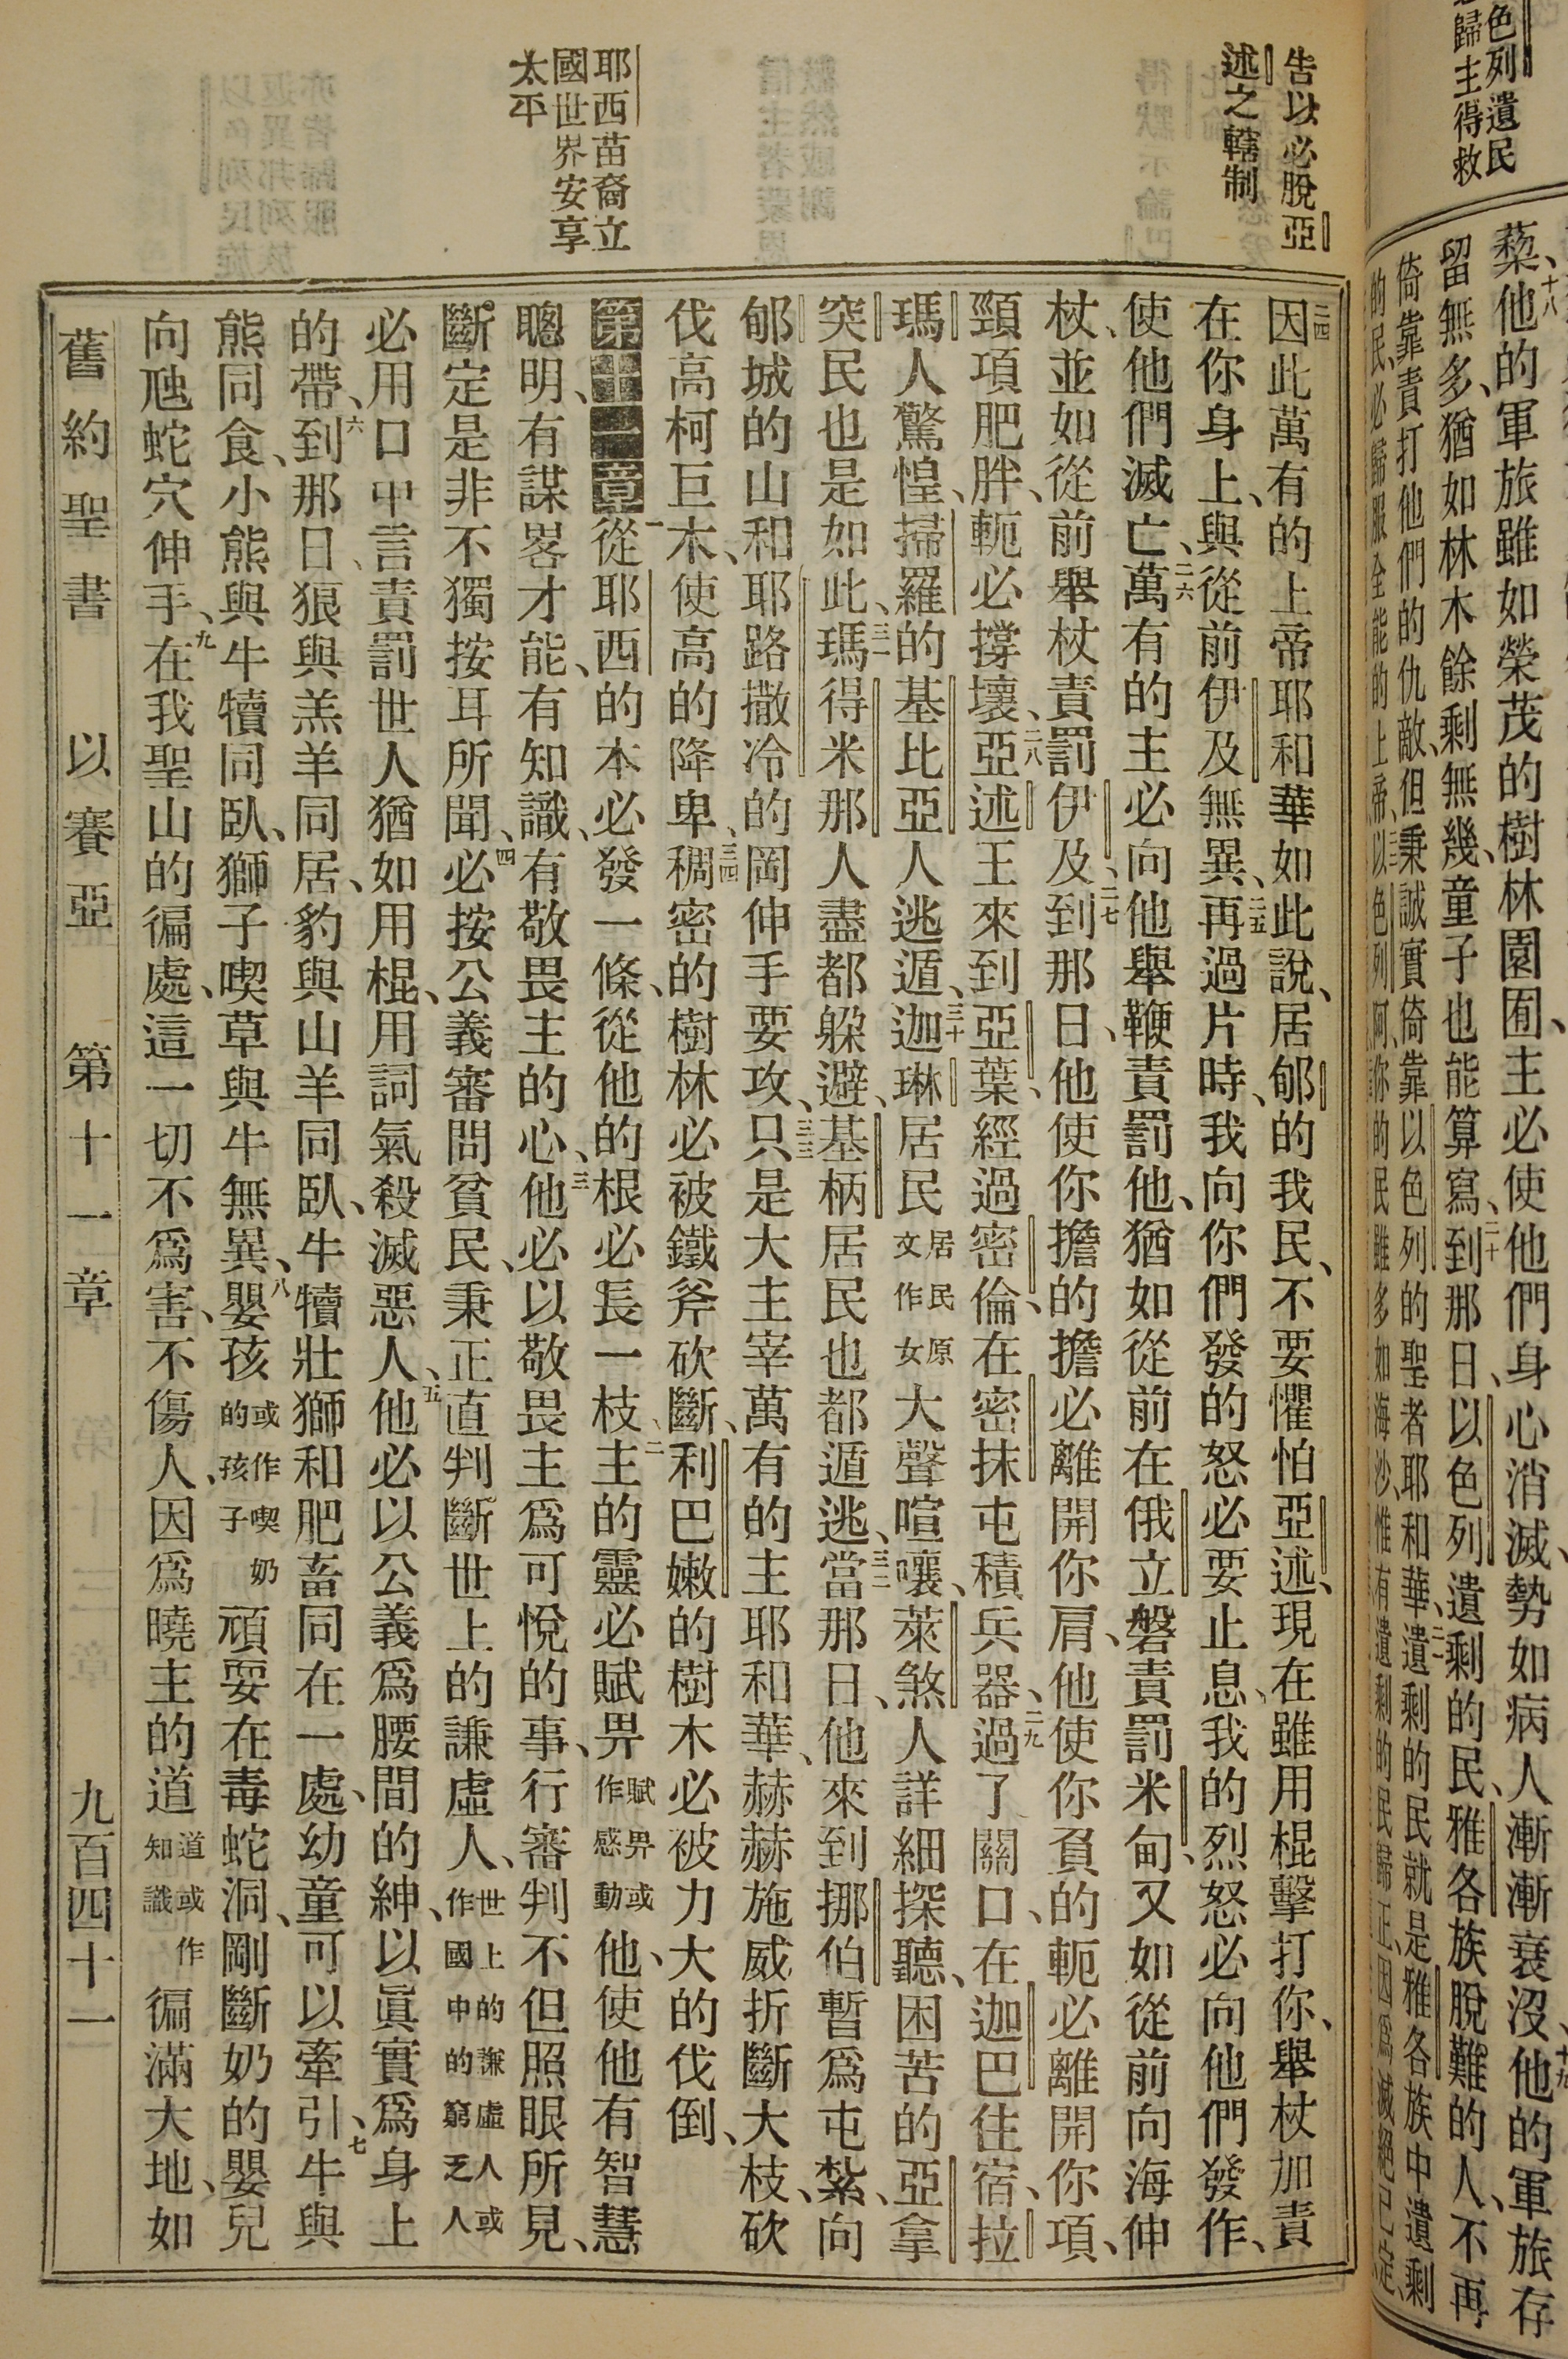 色列遺民
歸主得救
藜、十八他的軍旅雖如榮茂的樹林園囿、主必使他們身心消滅、勢如病人漸漸衰沒、十九他的軍旅存
留無多、猶如林木餘剩無幾、童子也能算寫、二十到那日、以色列遺剩的民、雅各族脫難的人、不再
倚靠責打他們的仇敵、但秉誠實倚靠以色列的聖者耶和華、二一遺剩的民就是雅各族中遺剩
的民、必歸服全能的上帝、二二以色列阿、你的民雖多如海沙、惟有遺剩的民歸正、因爲滅絕已定、
告以必脫亞
述之轄制
耶西苗裔立
國世界安享
太平
二四因此萬有的上帝耶和華如此說、居郇的我民、不要懼怕亞述、現在雖用棍擊打你、舉杖加責
在你身上、與從前伊及無異、二五再過片時、我向你們發的怒必要止息、我的烈怒必向他們發作、
使他們滅亡、二六萬有的主必向他舉鞭責罰他、猶如從前在俄立磐責罰米甸、又如從前向海伸
杖、並如從前舉杖責罰伊及、二七到那日、他使你擔的擔必離開你肩、他使你負的軛必離開你項、
頸項肥胖、軛必撐壞、二八亞述王來到亞葉、經過密倫、在密抹屯積兵器、二九過了關口、在迦巴住宿、拉
瑪人驚惶、掃羅的基比亞人逃遁、三十迦琳居民居民原文作女大聲喧嚷、萊煞人詳細探聽、困苦的亞拿
突民也是如此、三一瑪得米那人盡都躲避、基柄居民也都遁逃、三二當那日、他來到挪伯暫爲屯紮、向
郇城的山和耶路撒冷的岡伸手要攻、三三只是大主宰萬有的主耶和華、赫赫施威折斷大枝、砍
伐高柯巨木、使高的降卑、三四稠密的樹林必被鐵斧砍斷、利巴嫩的樹木必被力大的伐倒、
第十一章一從耶西的本必發一條、從他的根必長一枝、二主的靈必賦畀賦畀或作感動他、使他有智慧
聰明、有謀畧才能、有知識、有敬畏主的心、三他必以敬畏主爲可悅的事、行審判不但照眼所見、
斷定是非不獨按耳所聞、四必按公義審問貧民、秉正直判斷世上的謙虛人、世上的謙虛人或作國中的窮乏人
必用口中言責罰世人猶如用棍、用詞氣殺滅惡人、五他必以公義爲腰間的紳、以眞實爲身上
的帶、六到那日、狼與羔羊同居、豹與山羊同臥、牛犢壯獅和肥畜同在一處、幼童可以牽引、七牛與
熊同食、小熊與牛犢同臥、獅子喫草與牛無異、八嬰孩或作喫奶的孩子頑耍在毒蛇洞、剛斷奶的嬰兒
向虺蛇穴伸手、九在我聖山的徧處、這一切不爲害、不傷人、因爲曉主的道道或作知識徧滿大地、如
舊約聖書 以賽亞 第十一章 九百四十一